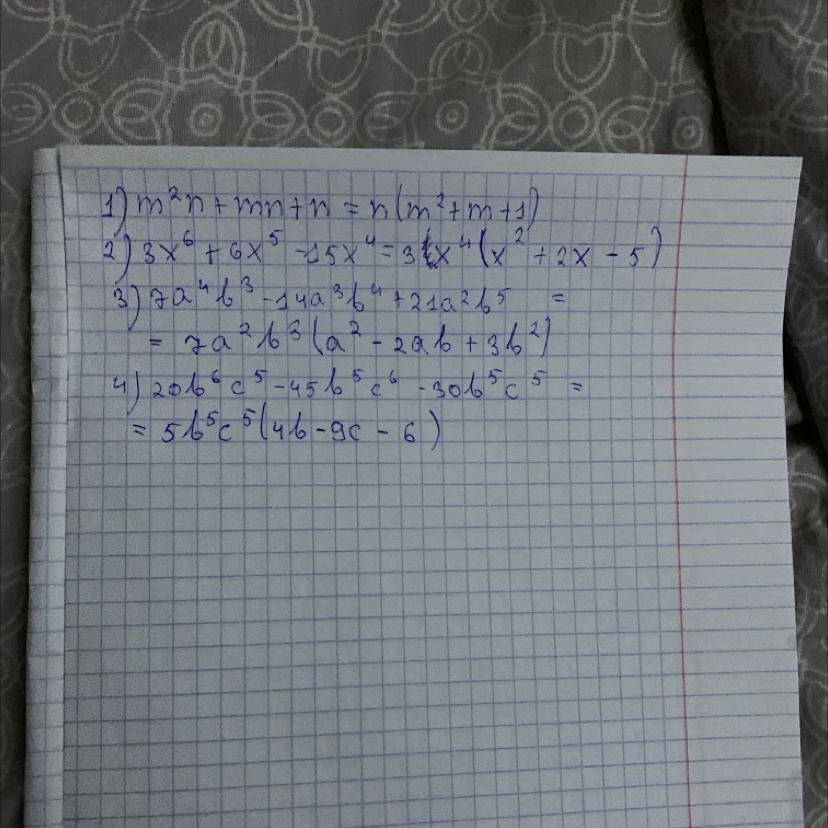 1) m²n + mn + n = n(m² + m + 1)
2) 3x⁶ + 6x⁵ - 15x⁴ = 3x⁴(x² + 2x - 5)
3) 7a⁴b³ - 14a³b⁴ + 21a²b⁵ =
= 7a²b³(a² - 2ab + 3b²)
4) 20b⁶c⁵ - 45b⁵c⁶ - 30b⁵c⁵ =
= 5b⁵c⁵(4b - 9c - 6)